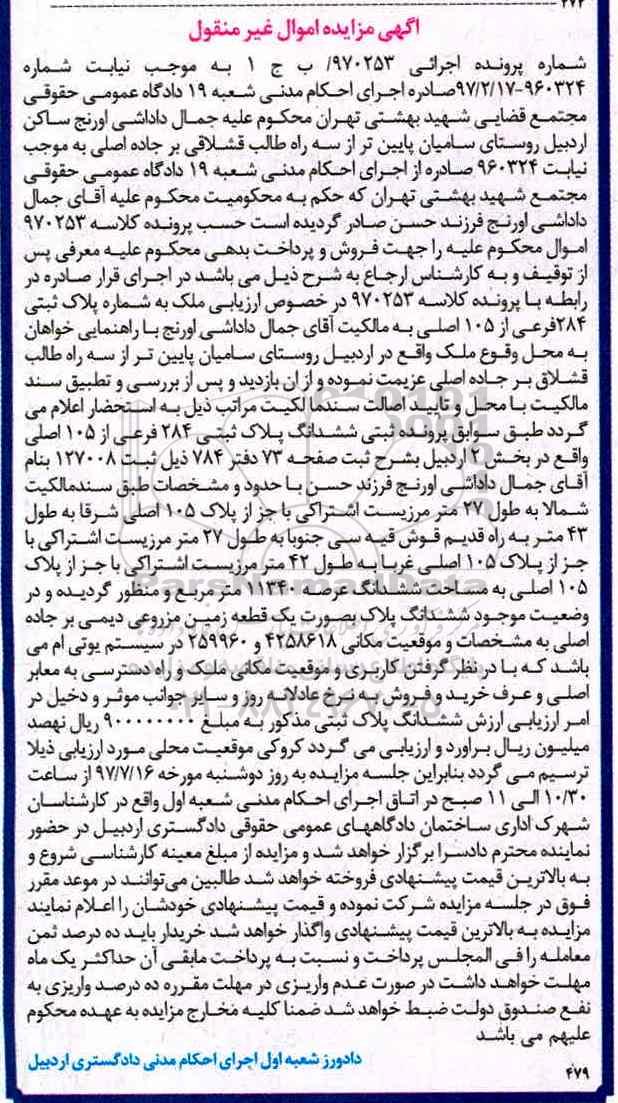 ۲۷۲
آگهی مزایده اموال غیر منقول
شماره پرونده اجرائی ۹۷۰۲۵۳/ ب ج ۱ به موجب نیابت شماره
۹۶۰۳۲۴-۹۷/۲/۱۷صادره اجرای احکام مدنی شعبه ۱۹ دادگاه عمومی حقوقی
مجتمع قضایی شهید بهشتی تهران محکوم علیه جمال داداشی اورنج ساکن
اردبیل روستای سامیان پایین تر از سه راه طالب قشلاقی بر جاده اصلی به موجب
نیابت ۹۶۰۳۲۴ صادره از اجرای احکام مدنی شعبه ۱۹ دادگاه عمومی حقوقی
مجتمع شهید بهشتی تهران که حکم به محکومیت محکوم علیه آقای جمال
داداشی اورنج فرزند حسن صادر گردیده است حسب پرونده کلاسه ۹۷۰۲۵۳
اموال محکوم علیه را جهت فروش و پرداخت بدهی محکوم علیه معرفی پس
از توقیف و به کارشناس ارجاع به شرح ذیل می باشد در اجرای قرار صادره در
رابطه با پرونده کلاسه ۹۷۰۲۵۳ در خصوص ارزیابی ملک به شماره پلاک ثبتی
۲۸۴فرعی از ۱۰۵ اصلی به مالکیت آقای جمال داداشی اورنج با راهنمایی خواهان
به محل وقوع ملک واقع در اردبیل روستای سامیان پایین تر از سه راه طالب
قشلاق بر جاده اصلی عزیمت نموده و از ان بازدید و پس از بررسی و تطبیق سند
مالکیت با محل و تایید اصالت سندمالکیت مراتب ذیل به استحضار اعلام می
گردد طبق سوابق پرونده ثبتی ششدانگ پلاک ثبتی ۲۸۴ فرعی از ۱۰۵ اصلی
واقع در بخش ۲ اردبیل بشرح ثبت صفحه ۷۳ دفتر ۷۸۴ ذیل ثبت ۱۲۷۰۰۸ بنام
آقای جمال داداشی اورنج فرزند حسن با حدود و مشخصات طبق سندمالکیت
شمالا به طول ۲۷ متر مرزیست اشتراکی با جز از پلاک ۱۰۵ اصلی شرقا به طول
۴۳ متر به راه قدیم قوش قیه سی جنوبا به طول ۲۷ متر مرزیست اشتراکی با
جز از پلاک ۱۰۵ اصلی غربا به طول ۴۲ متر مرزیست اشتراکی با جز از پلاک
۱۰۵ اصلی به مساحت ششدانگ عرصه ۱۱۳۴۰ متر مربع و منظور گردیده و در
وضعیت موجود ششدانگ پلاک بصورت یک قطعه زمین مزروعی دیمی بر جاده
اصلی به مشخصات و موقعیت مکانی ۴۲۵۸۶۱۸ و ۲۵۹۹۶۰ در سیستم یوتی ام می
باشد که با در نظر گرفتن کاربری و موقعیت مکانی ملک و راه دسترسی به معابر
اصلی و عرف خرید و فروش به نرخ عادلانه روز و سایر جوانب موثر و دخیل در
امر ارزیابی ارزش ششدانگ پلاک ثبتی مذکور به مبلغ ۹۰۰۰۰۰۰۰۰ ریال نهصد
میلیون ریال براورد و ارزیابی می گردد کروکی موقعیت محلی مورد ارزیابی ذیلا
ترسیم می گردد بنابراین جلسه مزایده به روز دوشنبه مورخه ۹۷/۷/۱۶ از ساعت
۱۰/۳۰ الی ۱۱ صبح در اتاق اجرای احکام مدنی شعبه اول واقع در کارشناسان
شهرک اداری ساختمان دادگاههای عمومی حقوقی دادگستری اردبیل در حضور
نماینده محترم دادسرا برگزار خواهد شد و مزایده از مبلغ معینه کارشناسی شروع و
به بالاترین قیمت پیشنهادی فروخته خواهد شد طالبین می‌توانند در موعد مقرر
فوق در جلسه مزایده شرکت نموده و قیمت پیشنهادی خودشان را اعلام نمایند
مزایده به بالاترین قیمت پیشنهادی واگذار خواهد شد خریدار باید ده درصد ثمن
معامله را فی المجلس پرداخت و نسبت به پرداخت مابقی آن حداکثر یک ماه
مهلت خواهد داشت در صورت عدم واریزی در مهلت مقرره ده درصد واریزی به
نفع صندوق دولت ضبط خواهد شد ضمنا کلیه مخارج مزایده به عهده محکوم
علیهم می باشد
دادورز شعبه اول اجرای احکام مدنی دادگستری اردبیل
۴۷۹
ParsNamadData